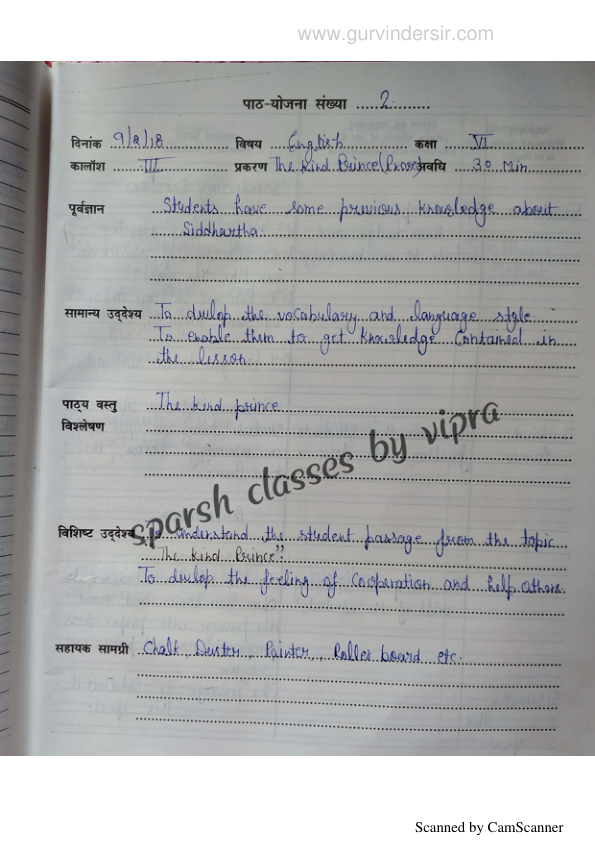 www.gurvindersir.com
पाठ-योजना संख्या .....2.........
दिनांक 9/8/18 विषय English कक्षा VI
कालॉंश III प्रकरण The Kind Prince (Prose) अवधि 30 Min
पूर्वज्ञान Students have some previous knowledge about
Siddhartha.
सामान्य उद्देश्य To devlop the vocabulary and language style.
To enable them to get knowledge contained in
the lesson.
पाठ्य वस्तु The kind prince
विश्लेषण
sparsh classes by vipra
विशिष्ट उद्देश्य To understand the student passage from the topic
"The Kind Prince"
To devlop the feeling of cooperation and help others.
सहायक सामग्री Chalk, Duster, Pointer, Roller board etc.
Scanned by CamScanner